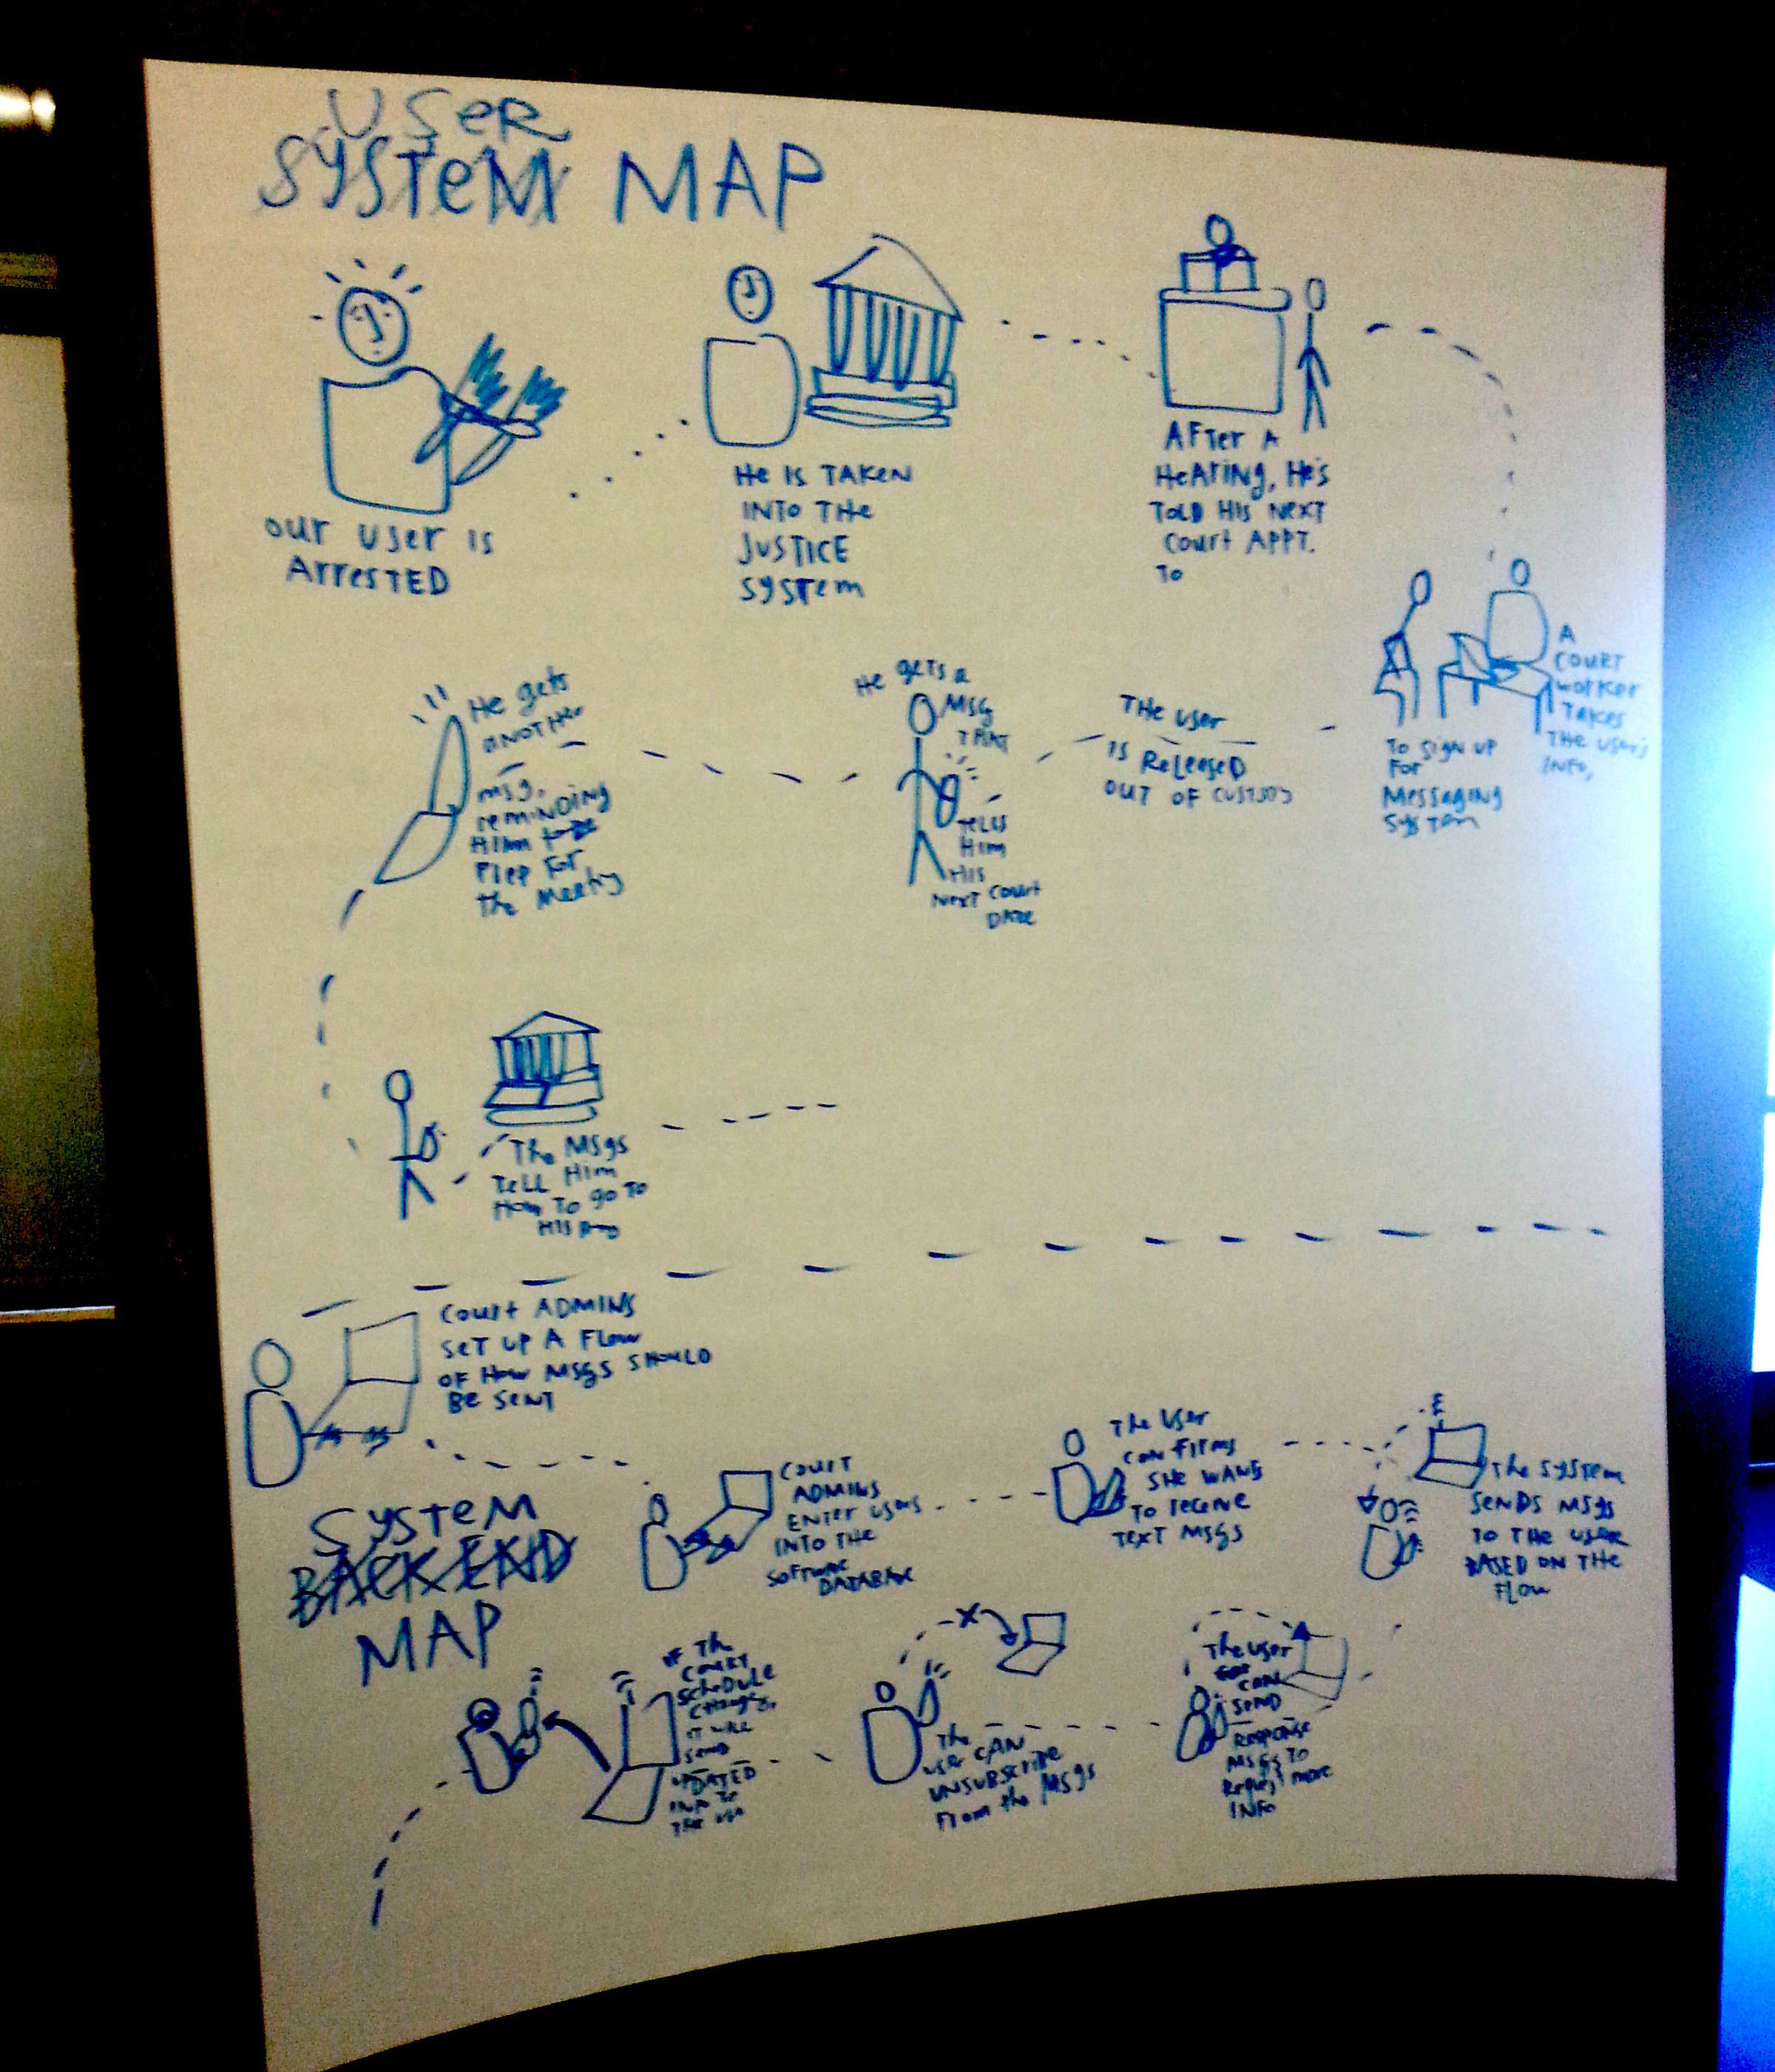 USER
SYSTEM MAP
OUR USER IS
ARRESTED
HE IS TAKEN
INTO THE
JUSTICE
SYSTEM
AFTER A
HEARING, HE'S
TOLD HIS NEXT
COURT APPT.
TO
A
COURT
WORKER
TAKES
THE USER'S
INFO,
TO SIGN UP
FOR
MESSAGING
SYSTEM
THE USER
IS RELEASED
OUT OF CUSTODY
HE GETS A
MSG
THAT
TELLS
HIM
HIS
NEXT COURT
DATE
HE GETS
ANOTHER
MSG.
REMINDING
HIM TO
PREP FOR
THE MEETING
THE MSGS
TELL HIM
HOW TO GO TO
HIS
COURT ADMINS
SET UP A FLOW
OF HOW MSGS SHOULD
BE SENT
SYSTEM
BACKEND
MAP
COURT
ADMINS
ENTER USERS
INTO THE
SOFTWARE
DATABASE
THE USER
CONFIRMS
SHE WANTS
TO RECEIVE
TEXT MSGS
THE SYSTEM
SENDS MSGS
TO THE USER
BASED ON THE
FLOW
THE USER
CAN
SEND
RESPONSE
MSGS TO
REQUEST MORE
INFO
THE
USER CAN
UNSUBSCRIBE
FROM THE MSGS
IF THE
COURT
SCHEDULE
CHANGES,
IT WILL
SEND
UPDATED
INFO TO
THE USER